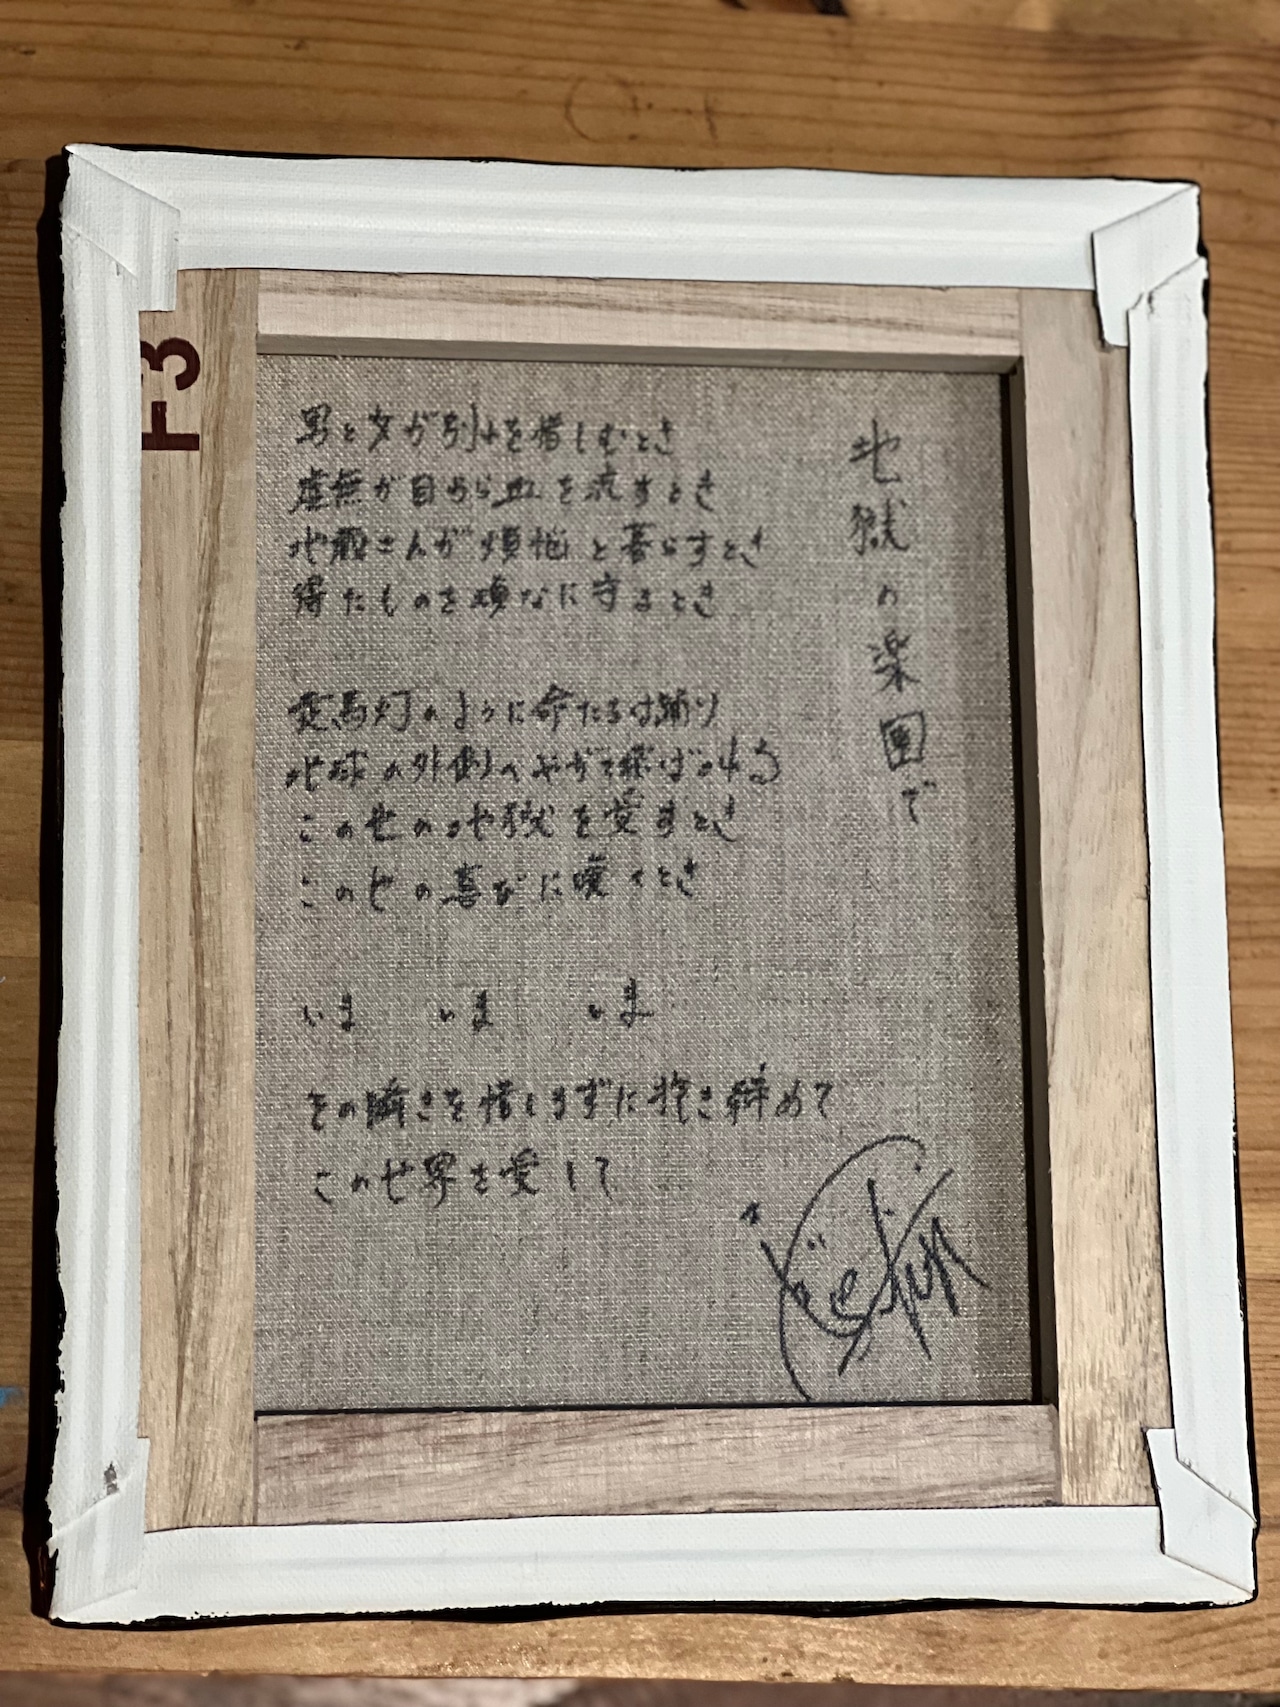 地獄の楽園で
男と女が別れを惜しむとき
虚無が目から血を流すとき
地蔵さんが煩悩と暮らすとき
得たものを頑なに守るとき
走馬灯のように命たちは踊り
地球の外側へやがて飛ばされる
この世の地獄を愛すとき
この世の喜びに嘆くとき
いま いま いま
その瞬きを惜しまずに抱き締めて
この世界を愛して
F3